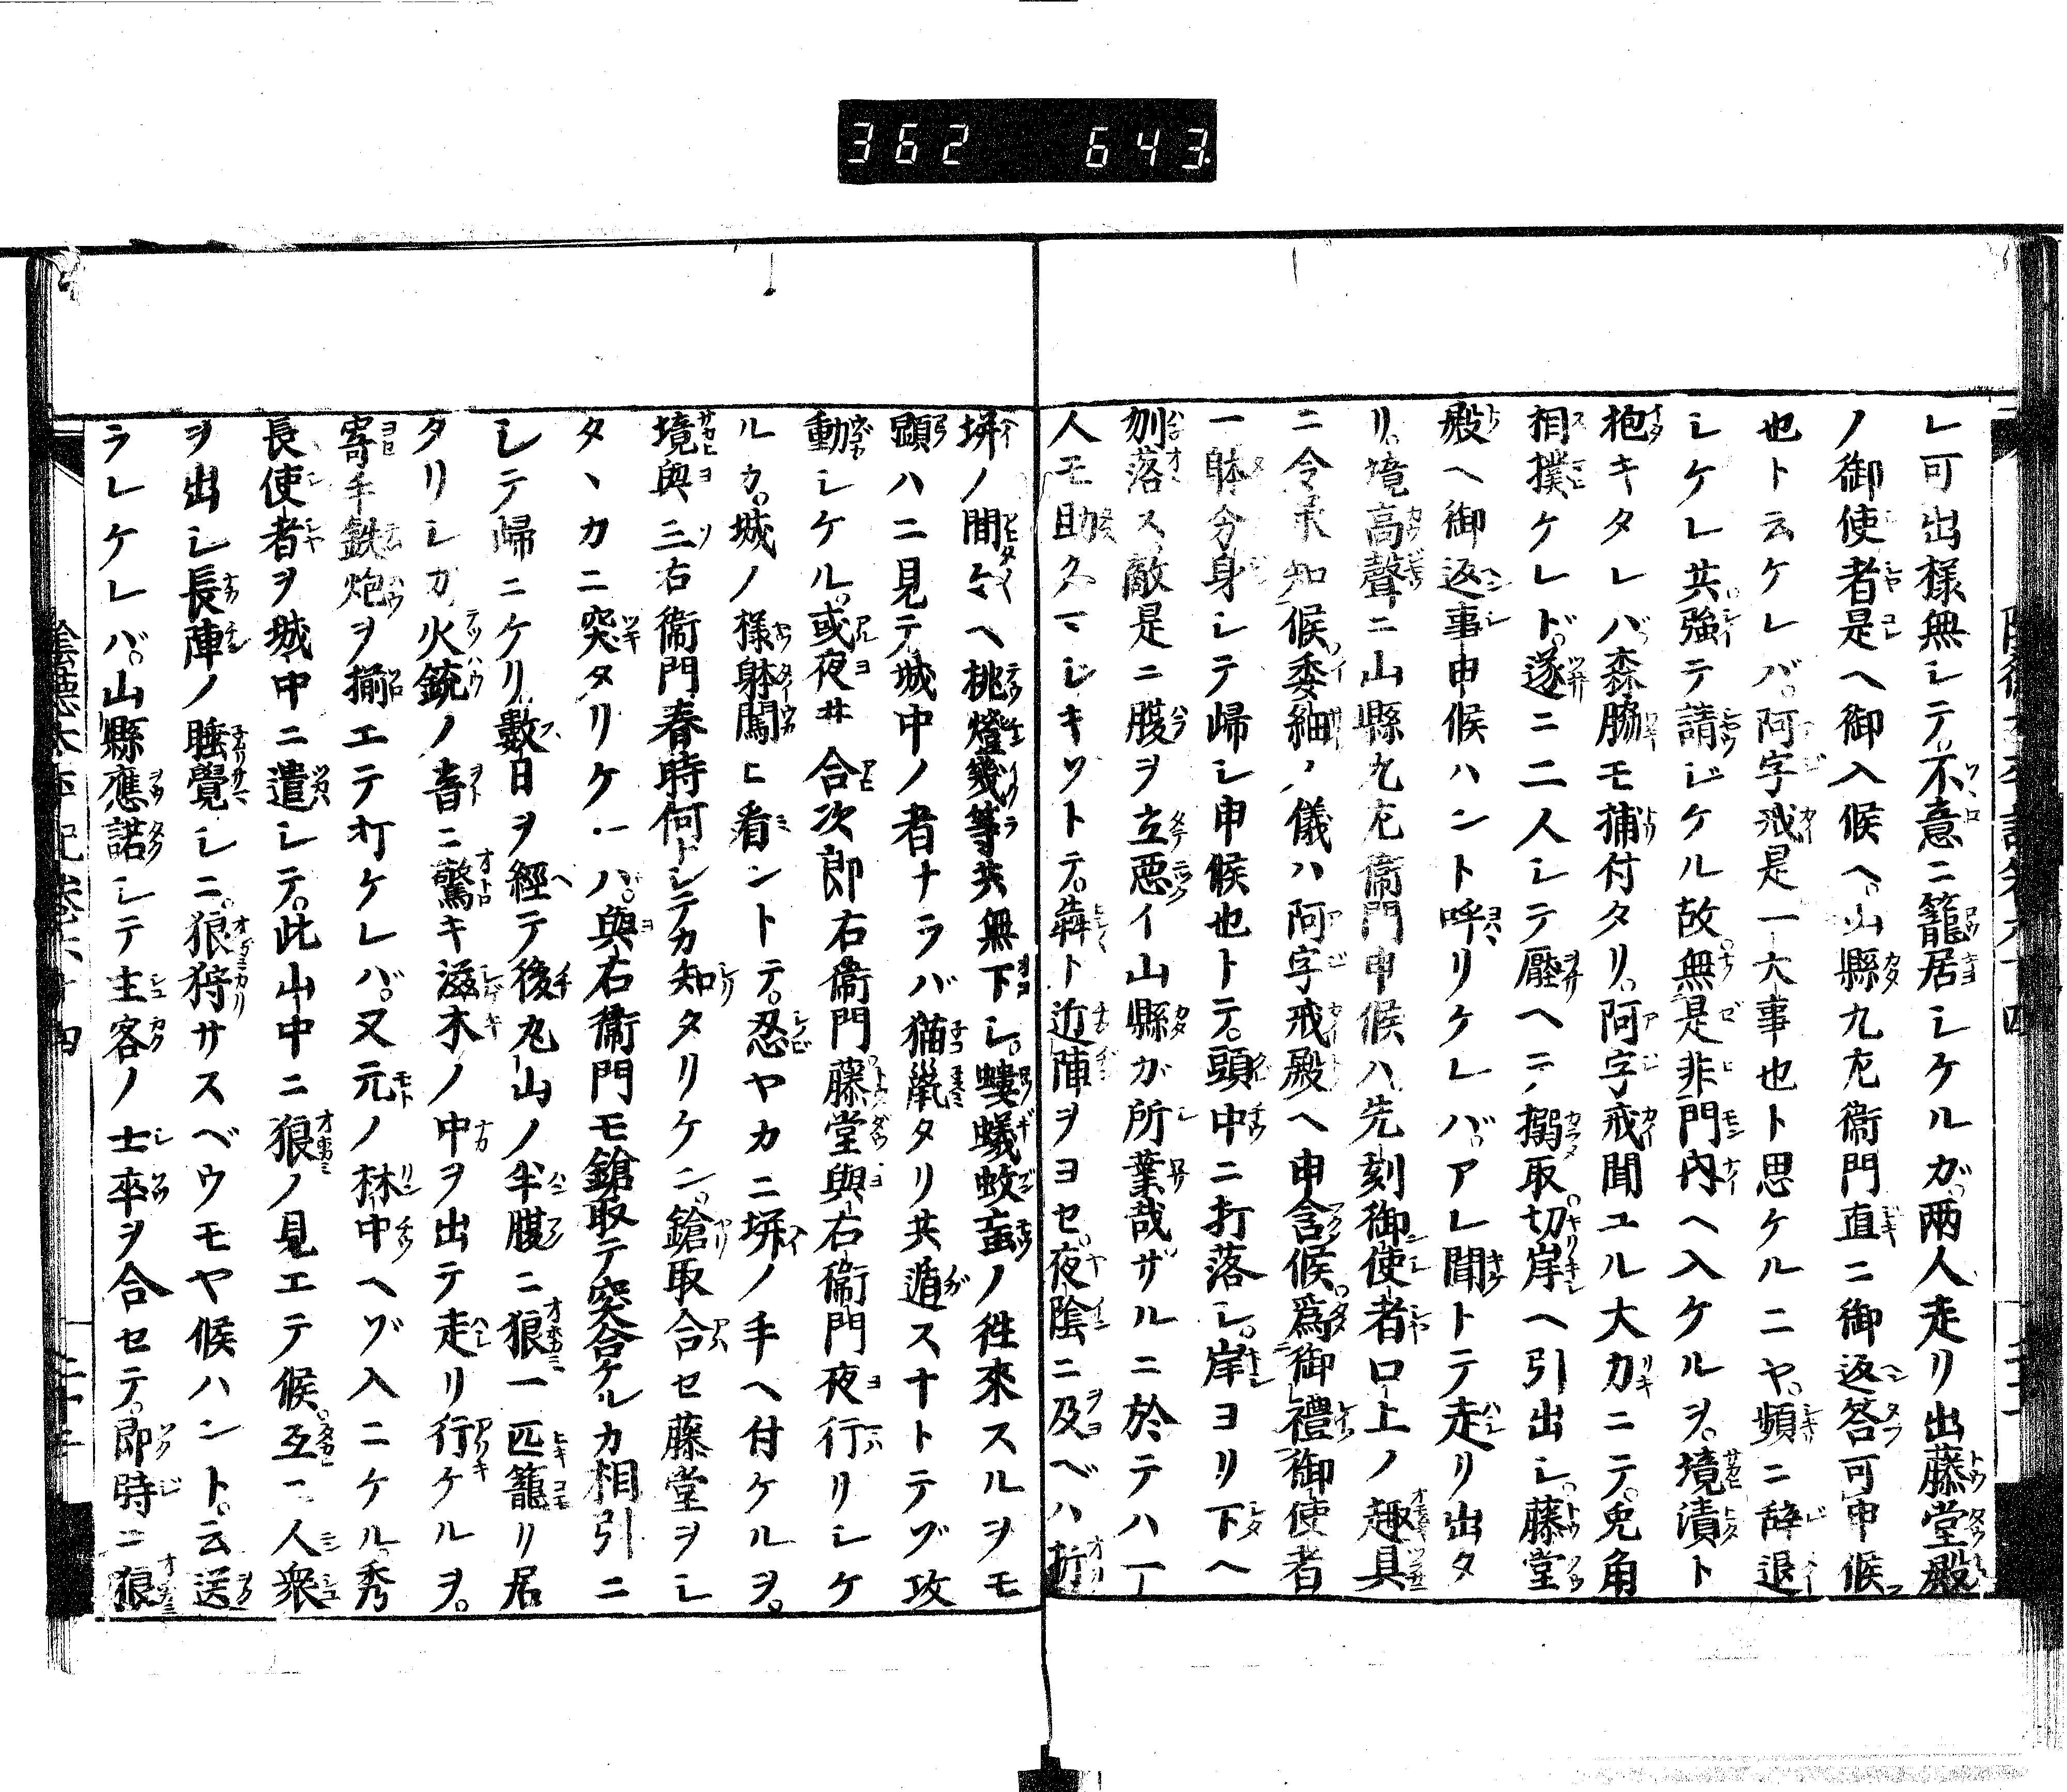 362 643.
レ可出様無シテ不意ニ籠居シケルガ両人走リ出藤堂殿
ノ御使者是ヘ御入候ヘ。山縣九左衞門直ニ御返答可申候
也ト云ケレバ。阿字戒是一大事也ト思ケルニヤ。頻ニ辞退
シケレ共。強テ請ジケル故無是非門内ヘ入ケルヲ。境漬ト
抱キタレバ森脇モ捕付タリ。阿字戒聞ユル大力ニテ。兎角
相撲ケレド。遂ニ二人シテ壓ヘテ搦取。切岸ヘ引出シ。藤堂
殿ヘ御返事申候ハント呼リケレバ。アレ聞トテ走リ出タ
リ。境高聲ニ山縣九左衞門申候ハ先刻御使者口上ノ趣具
ニ令承知候委細ノ儀ハ阿字戒殿ヘ申含候。爲御禮御使者
一躰分身シテ歸シ申候也トテ。頭中ニ打落シ。岸ヨリ下ヘ
刎落ス。敵是ニ腹ヲ立惡イ山縣ガ所業哉ザルニ於テハ一
人モ助クマジキゾトテ。犇ト近陣ヲヨセ。夜陰ニ及ベハ折
塀ノ間々ヘ桃燈幾等共無下シ。螻蟻蚊虻ノ徃來スルヲモ
顕ハニ見テ。城中ノ者ナラバ猫鼠タリ共遁スナトテゾ攻
動シケル。或夜井合次郎右衞門。藤堂與右衞門夜行リシケ
ルカ。城ノ様躰闚ヒ看ントテ。忍ヤカニ塀ノ手ヘ付ケルヲ。
境與三右衞門春時何トシテカ知タリケン。鎗取合セ藤堂ヲシ
タヽカニ突タリケレハ。與右衞門モ鎗取テ突合ケルカ相引ニ
シテ歸ニケリ。數日ヲ經テ後丸山ノ半腹ニ狼一匹籠リ居
タリシカ。火銃ノ音ニ驚キ滋木ノ中ヲ出テ走リ行ケルヲ。
寄手鉄炮ヲ揃エテ打ケレバ。又元ノ林中ヘゾ入ニケル。秀
長使者ヲ城中ニ遣シテ。此山中ニ狼ノ見エテ候。互ニ人衆
ヲ出シ長陣ノ睡覺シニ。狼狩サスベウモヤ候ハント。云送
ラレケレバ。山縣應諾シテ主客ノ士卒ヲ合セテ。即時ニ狼